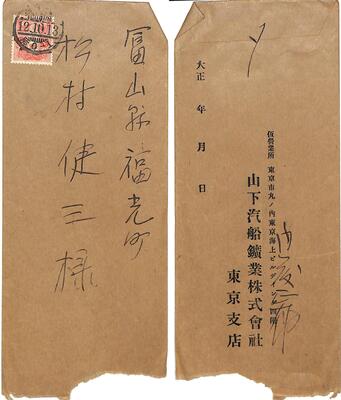 12.10.13
富山縣福光町
松村健三様
〆
大正 年 月 日
仮營業所 東京市丸ノ内東京海上ビルディング四階
山下汽船鑛業株式會社
東京支店